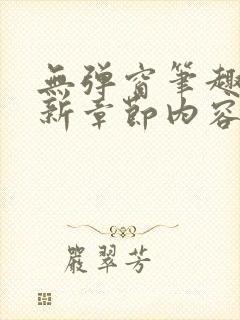 無彈窗筆趣
新章節內容
嚴翠芳